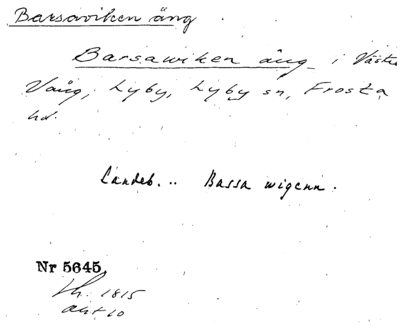 Barsaviken äng
Barsawiken äng i Västra
Vång, Lyby, Lyby sn, Frosta
hd.
Landeb. .. Bassa wigenn.
Nr 5645.
1815
akt 10